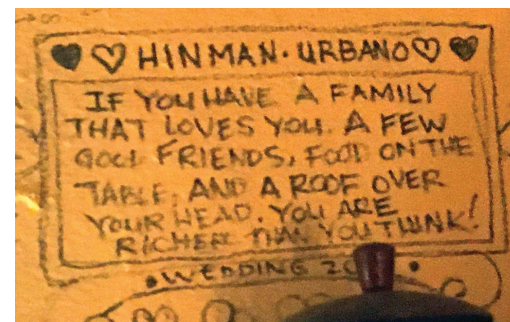 ♥ ♡ HINMAN · URBANO ♡ ♥
IF YOU HAVE A FAMILY
THAT LOVES YOU. A FEW
GOOD FRIENDS, FOOD ON THE
TABLE, AND A ROOF OVER
YOUR HEAD. YOU ARE
RICHER THAN YOU THINK!
• WEDDING